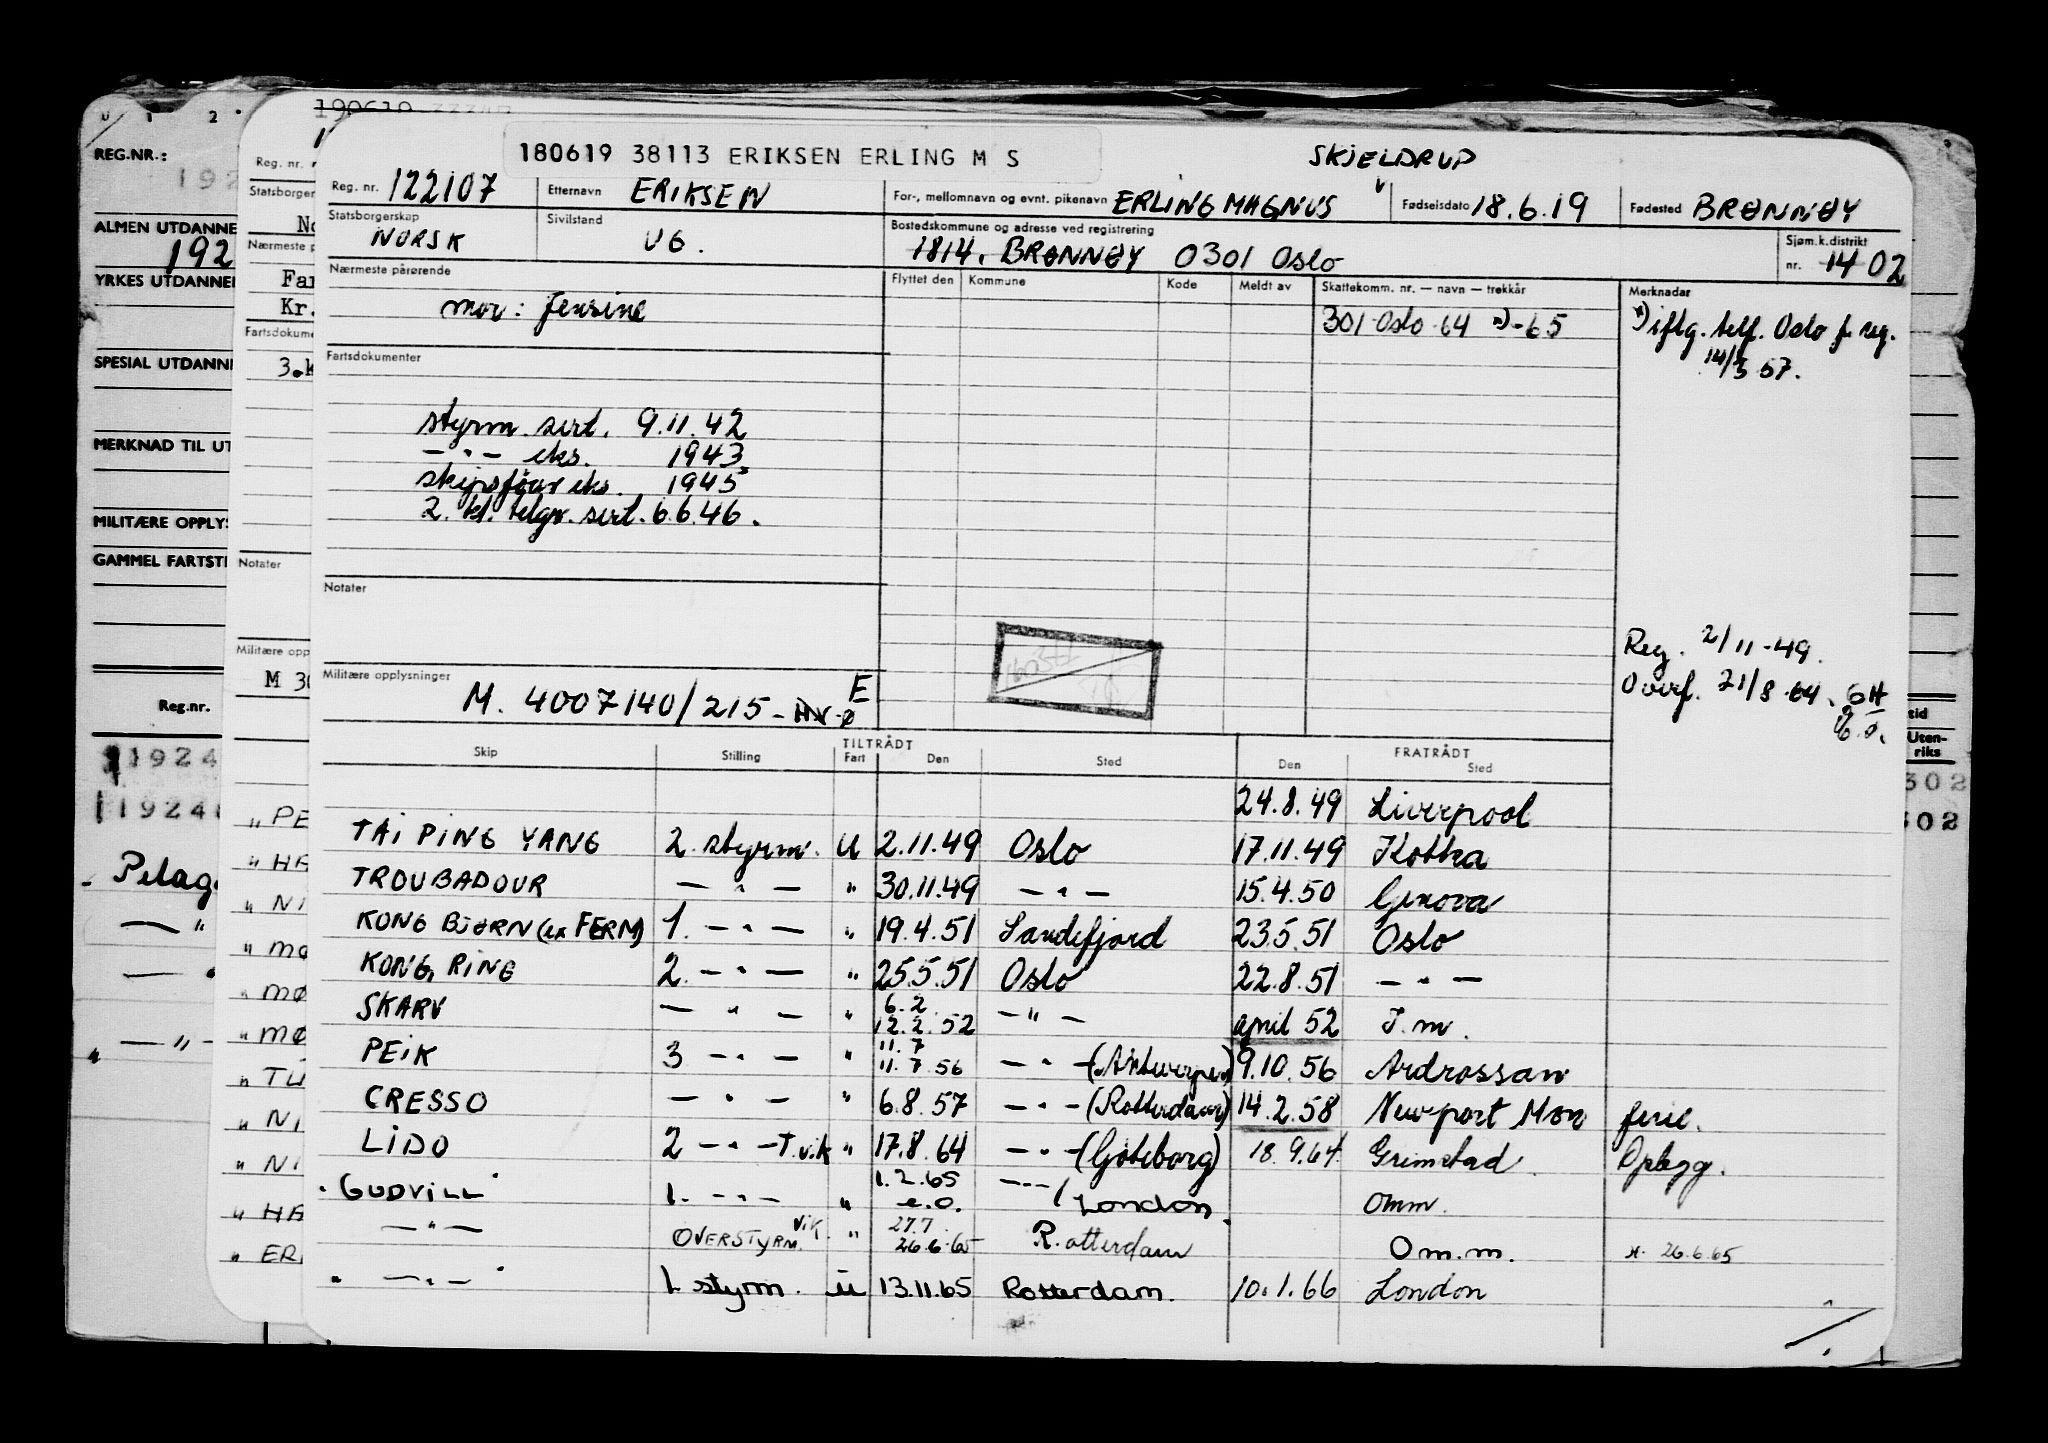 190619
180619 38113 ERIKSEN ERLING M S
SKJELDRUP
Reg. nr. 122107 Etternavn ERIKSEN For-, mellomnavn og evnt. pikenavn ERLING MAGNUS Fødselsdato 18.6.19 Fødested BRØNNØY
Statsborgerskap NORSK Sivilstand UG. Bostedskommune og adresse ved registrering 1814, BRØNNØY 0301 Oslo Sjøm.k.distrikt nr. 14 02
Nærmeste pårørende Flyttet den Kommune Kode Meldt av Skattekomm. nr. — navn — trekkår Merknader
mor: Jensine 301 Oslo 64 *) - 65 *) iflg. telf. Oslo f. reg.
14/3 57.
Fartsdokumenter
styrm. sert. 9.11.42
— " — eks. 1943
skipsfører eks. 1945
2. kl. telgr. sert. 6.6.46.
Notater
Reg. 2/11-49.
Militære opplysninger M. 4007140/215 - HV - Ø E
Overf. 21/8-64. GH
Skip Stilling TILTRÅDT Fart Den Sted FRATRÅDT Den Sted
24.8.49 Liverpool
TAI PING YANG 2. styrm. U 2.11.49 Oslo 17.11.49 Kotka
TROUBADOUR — " — " 30.11.49 — " — 15.4.50 Genova
KONG BJØRN (ex FERM) 1. — " — " 19.4.51 Sandefjord 23.5.51 Oslo
KONG RING 2. — " — " 25.5.51 Oslo 22.8.51 — " —
SKARV — " — " 6.2 12.2.52 — " — april 52 I.m.
PEIK 3 — " — " 11.7 11.7.56 — " — (Antwerpen) 9.10.56 Ardrossan
CRESSO — " — " 6.8.57 — " — (Rotterdam) 14.2.58 Newport Mon ferie.
LIDO 2 — " — T.vik " 17.8.64 — " — (Göteborg) 18.9.64 Grimstad Opplegg.
GUDVILL 1. — " — " 1.2.65 e.o. — " — / London. omm.
— " — OVERSTYRM. vik. " 27.7 26.6.65 Rotterdam Om.m. *. 26.6.65
" — " — 1. styrm. u 13.11.65 Rotterdam. 10.1.66 London
REG.NR.:
192
ALMEN UTDANNE
192
YRKES UTDANNE
SPESIAL UTDANNE
MERKNAD TIL UT
MILITÆRE OPPLYS
GAMMEL FARTSTI
Reg.nr.
1924
1924
Pelag
Reg. nr.
Statsborger
No
Nærmeste p
Far
Kr.
Fartsdokume
3.k
Notater
Militære opp
M 30
" PE
" HA
" NI
" MO
" MØ
" MØ
" TU
" NI
" NI
" HA
" ER
tid
Uten-
riks
302
302